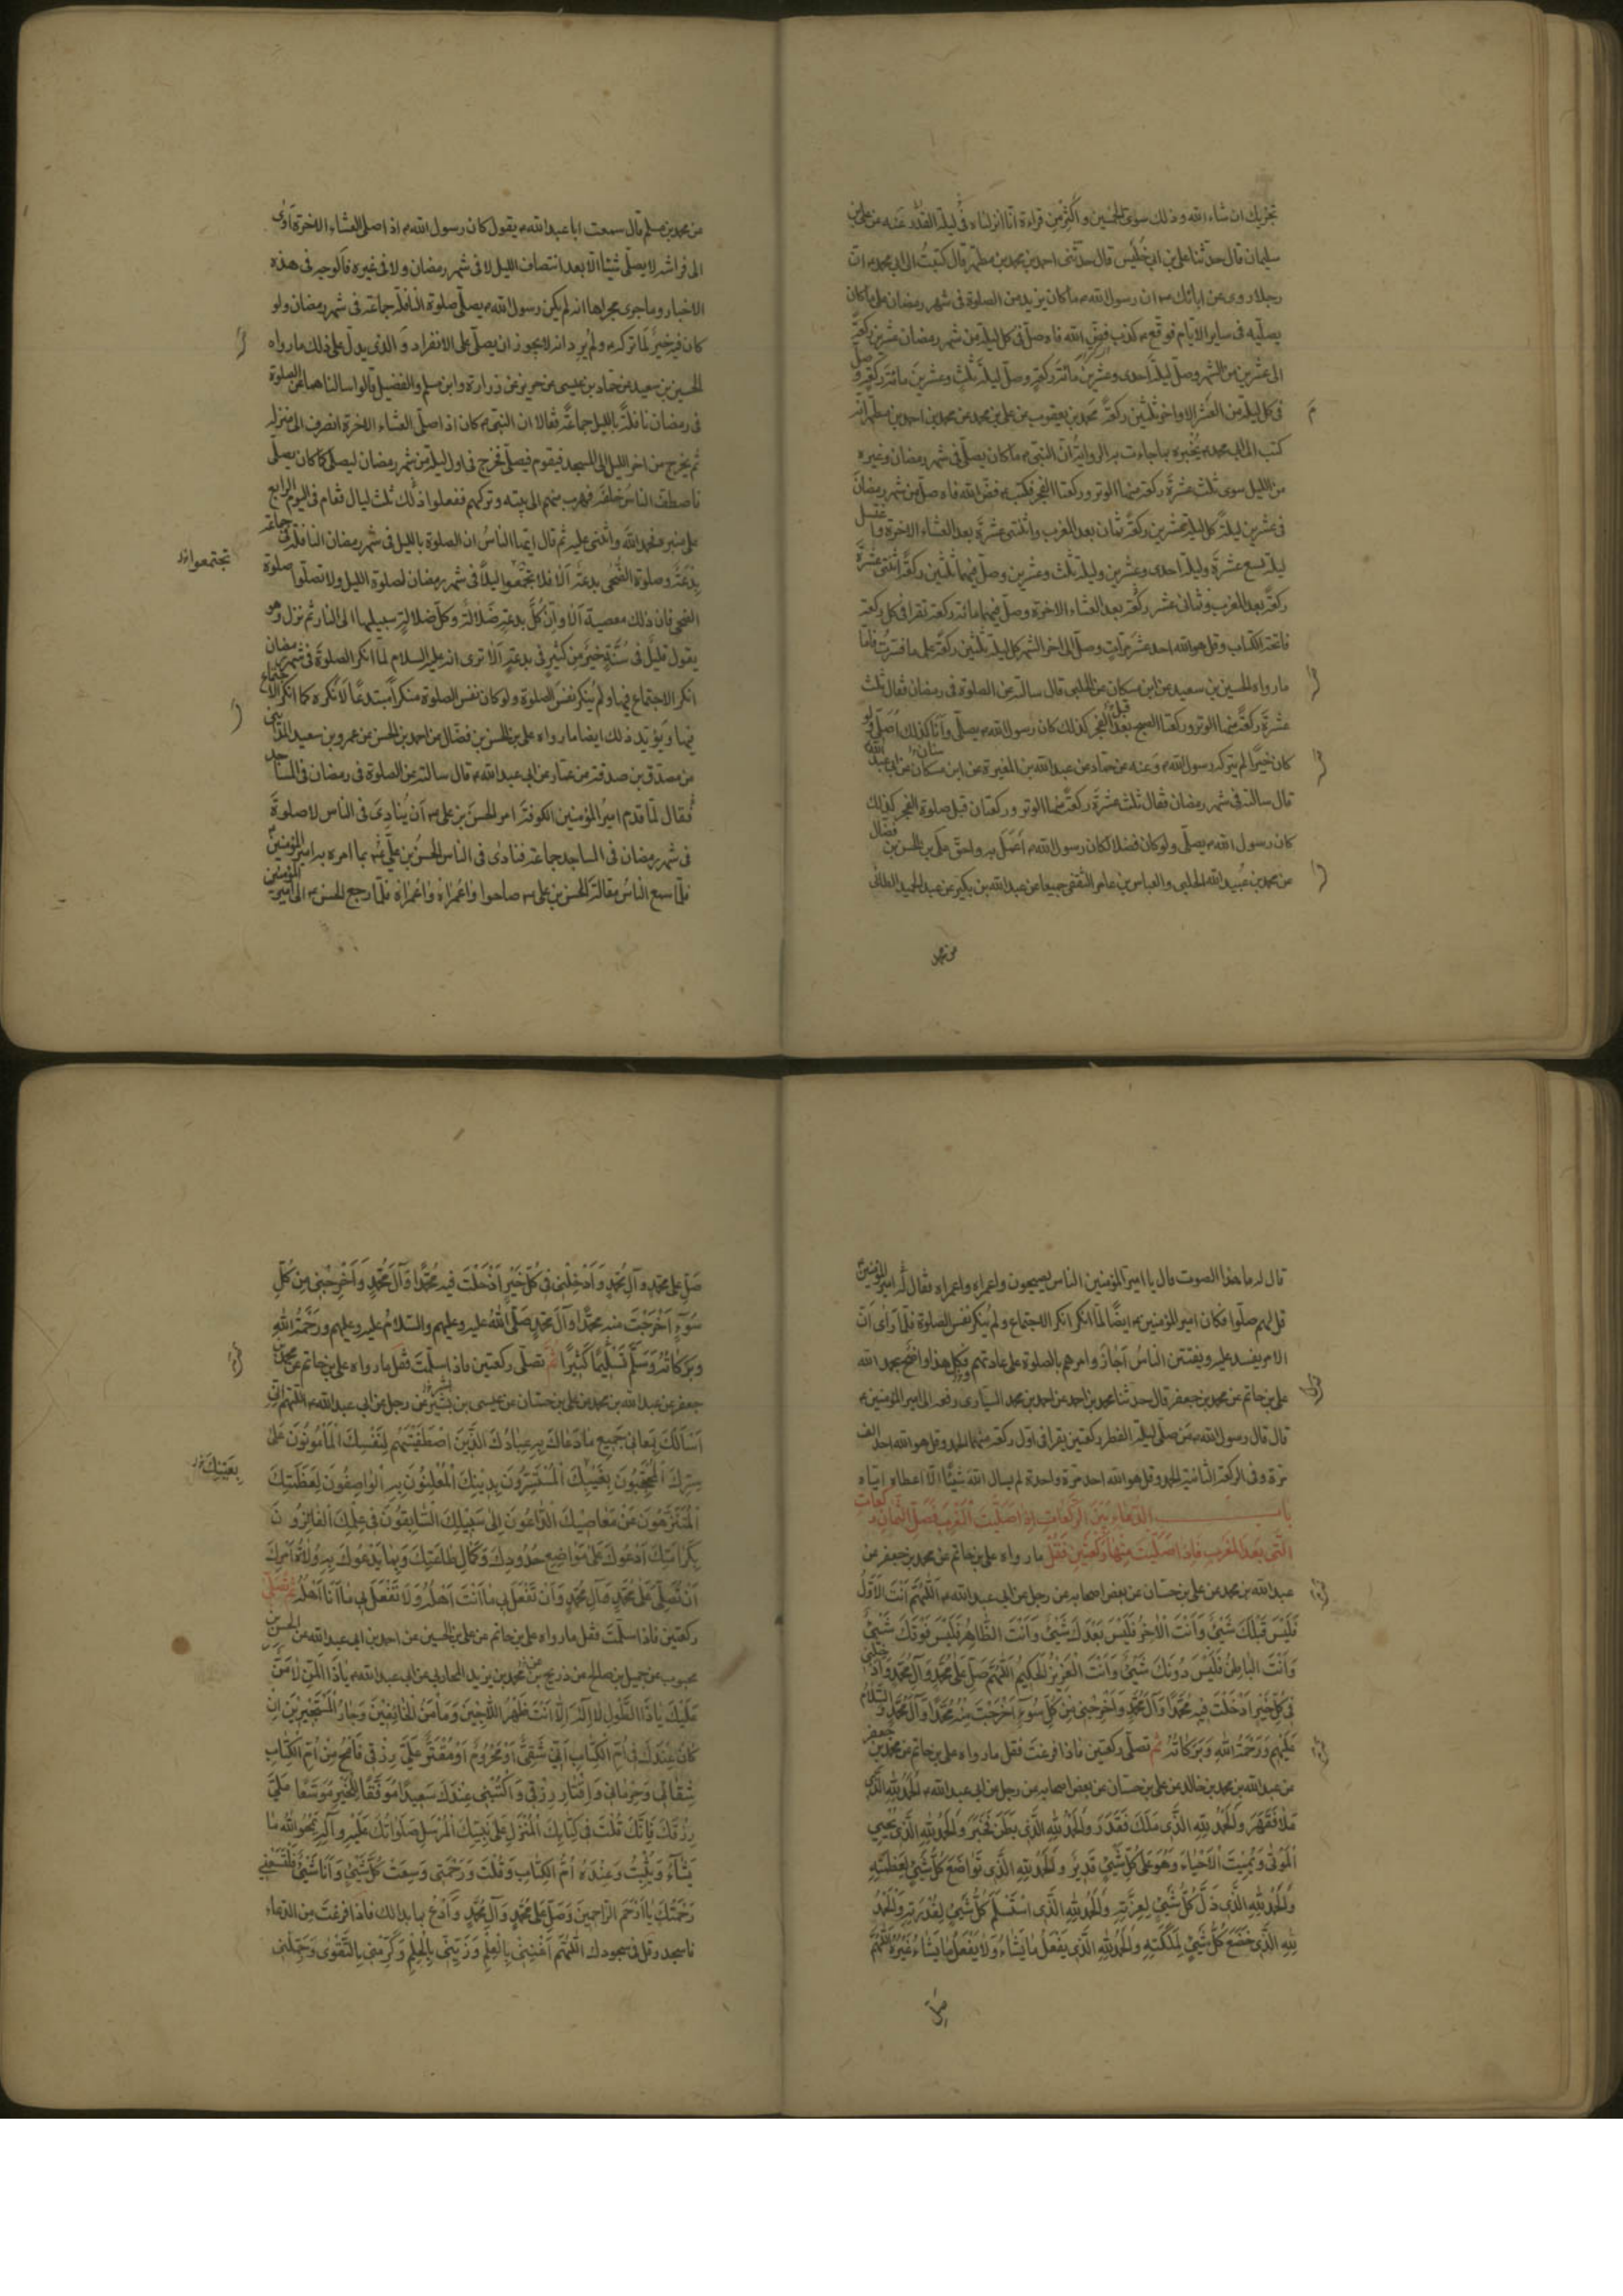 تجزيك ان شاء الله وذلك سوى الخمسين واكثر من قراءة انا انزلناه في ليلة القدر عنه عن علي بن
سليمان قال حدثنا علي بن ابي خليس قال حدثنى احمد بن محمد بن مطهر قال كتبت الى ابي محمد ان
رجلا روى عن ابائك ان رسول الله ما كان يزيد من الصلوة فى شهر رمضان على ما كان
يصليه فى ساير الايام فوقع كذب فض الله فاه صل فى كل ليلة من شهر رمضان عشرين ركعة
الى عشرين من الشهر وصل ليلة احدى وعشرين مائة ركعة وصل ليلة ثلث وعشرين مائة ركعة وصل
فى كل ليلة من العشر الاواخر ثلثين ركعة محمد بن يعقوب عن علي بن محمد عن محمد بن احمد بن مطهر انه
كتب الى ابي محمد يخبره بما جاءت به الرواية ان النبى ما كان يصلى فى شهر رمضان وغيره
من الليل سوى ثلث عشرة ركعة منها الوتر وركعتا الفجر فكتب فض الله فاه صل من شهر رمضان
فى عشرين ليلة كل ليلة عشرين ركعة ثمان بعد المغرب واثنتى عشرة بعد العشاء الاخرة واغتسل
ليلة تسع عشرة وليلة احدى وعشرين وليلة ثلث وعشرين وصل فيهما ثلثين ركعة اثنتى عشرة
ركعة بعد المغرب وثمانى عشر ركعة بعد العشاء الاخرة وصل فيهما مائة ركعة تقرا فى كل ركعة
فاتحة الكتاب وقل هو الله احد عشر مرات وصل الى اخر الشهر كل ليلة ثلثين ركعة على ما فسرت فاما
ما رواه الحسين بن سعيد عن ابن مسكان عن الحلبى قال سالته عن الصلوة فى رمضان فقال ثلث
عشرة ركعة منها الوتر وركعتا الصبح بعد الفجر كذلك كان رسول الله يصلى وانا كذلك اصلى ولو
كان خيرا لم يتركه رسول الله وعنه عن حماد عن عبد الله بن المغيرة عن ابن مسكان عن ابي عبد الله
قال سالته فى شهر رمضان فقال ثلث عشرة ركعة منها الوتر وركعتان قبل صلوة الفجر كذلك
كان رسول الله يصلى ولو كان فضلا كان رسول الله اعمل به واحق علي بن الحسن بن فضال
عن محمد بن عبيد الله الحلبى والعباس بن عامر الثقفى جميعا عن عبد الله بن بكير عن عبد الحميد الطائى
عن محمد
عن محمد بن مسلم قال سمعت ابا عبد الله يقول كان رسول الله اذا صلى العشاء الاخرة اوى
الى فراشه لا يصلى شيئا الا بعد انتصاف الليل لا فى شهر رمضان ولا فى غيره فالوجه فى هذه
الاخبار وما جرى مجراها انه لم يكن رسول الله يصلى صلوة النافلة جماعة فى شهر رمضان ولو
كان فيه خير لما تركه ولم يرد انه لا يجوز ان يصلى على الانفراد والذى يدل على ذلك ما رواه
الحسين بن سعيد عن حماد بن عيسى عن حريز عن زرارة وابن مسلم والفضيل قالوا سالناهما عن الصلوة
فى رمضان نافلة بالليل جماعة فقالا ان النبى كان اذا صلى العشاء الاخرة انصرف الى منزله
ثم يخرج من اخر الليل الى المسجد فيقوم فيصلى فخرج فى اول ليلة من شهر رمضان ليصلى كما كان يصلى
فاصطف الناس خلفه فهرب منهم الى بيته وتركهم ففعلوا ذلك ثلث ليال فقام فى اليوم الرابع
على منبره فحمد الله واثنى عليه ثم قال ايها الناس ان الصلوة بالليل فى شهر رمضان النافلة فى جماعة
تجتمعوا
بدعة وصلوة الضحى بدعة الا فلا تجمعوا ليلا فى شهر رمضان لصلوة الليل ولا تصلوا صلوة
الضحى فان ذلك معصية الا وان كل بدعة ضلالة وكل ضلالة سبيلها الى النار ثم نزل وهو
يقول قليل فى سنة خير من كثير فى بدعة الا ترى انه عليه السلام لما انكر الصلوة فى شهر رمضان
انكر الاجتماع فيها ولم ينكر نفس الصلوة ولو كان نفس الصلوة منكرا مبتدعا لانكره كما انكر الاجتماع
فيها ويؤيد ذلك ايضا ما رواه علي بن الحسن بن فضال عن احمد بن الحسن عن عمرو بن سعيد المداينى
عن مصدق بن صدقة عن عمار عن ابي عبد الله قال سالته عن الصلوة فى رمضان فى المساجد
فقال لما قدم امير المؤمنين الكوفة امر الحسن بن على ان ينادى فى الناس لا صلوة
فى شهر رمضان فى المساجد جماعة فنادى فى الناس الحسن بن على بما امره به امير المؤمنين
فلما سمع الناس مقالة الحسن بن على صاحوا واعمراه واعمراه فلما رجع الحسن الى امير المؤمنين
قال له ما هذا الصوت قال يا امير المؤمنين الناس يصيحون واعمراه واعمراه فقال له امير المؤمنين
قل لهم صلوا فكان امير المؤمنين ايضا لما انكر انكر الاجتماع ولم ينكر نفس الصلوة فلما راى ان
الامر يفسد عليه ويفتتن الناس اجاز وامرهم بالصلوة على عادتهم وكل هذا واضح بحمد الله
علي بن حاتم عن محمد بن جعفر قال حدثنا محمد بن احمد عن احمد بن محمد السيارى رفعه الى امير المؤمنين
قال قال رسول الله من صلى ليلة الفطر ركعتين يقرا فى اول ركعة منهما الحمد وقل هو الله احد الف
مرة وفى الركعة الثانية الحمد وقل هو الله احد مرة واحدة لم يسال الله شيئا الا اعطاه اياه
باب الدعاء بين الركعات اذا صليت المغرب فصل الثمان ركعات
التى بعد المغرب فاذا صليت منها ركعتين فقل ما رواه علي بن حاتم عن محمد بن جعفر عن
عبد الله بن محمد عن علي بن حسان عن بعض اصحابه عن رجل عن ابي عبد الله اللهم انت الاول
فليس قبلك شئ وانت الاخر فليس بعدك شئ وانت الظاهر فليس فوقك شئ
وانت الباطن فليس دونك شئ وانت العزيز الحكيم اللهم صل على محمد وآل محمد وادخلنى
فى كل خير ادخلت فيه محمدا وآل محمد واخرجنى من كل سوء اخرجت منه محمدا وآل محمد والسلام
عليهم ورحمة الله وبركاته ثم تصلى ركعتين فاذا فرغت فقل ما رواه علي بن حاتم عن محمد بن جعفر
عن عبد الله بن محمد بن خالد عن علي بن حسان عن بعض اصحابه عن رجل عن ابي عبد الله الحمد لله الذى
علا فقهر والحمد لله الذى ملك فقدر والحمد لله الذى بطن فخبر والحمد لله الذى يحيى
الموتى ويميت الاحياء وهو على كل شئ قدير والحمد لله الذى تواضع كل شئ لعظمته
والحمد لله الذى ذل كل شئ لعزته والحمد لله الذى استسلم كل شئ لقدرته والحمد
لله الذى خضع كل شئ لملكته والحمد لله الذى يفعل ما يشاء ولا يفعل ما يشاء غيره اللهم
صل
صل على محمد وآل محمد وادخلنى فى كل خير ادخلت فيه محمدا وآل محمد واخرجنى من كل
سوء اخرجت منه محمدا وآل محمد صلى الله عليه وعليهم والسلام عليه وعليهم ورحمة الله
وبركاته وسلم تسليما كثيرا ثم تصلى ركعتين فاذا سلمت فقل ما رواه علي بن حاتم عن محمد بن
جعفر عن عبد الله بن محمد عن علي بن حسان عن عيسى بن بشير عن رجل عن ابي عبد الله اللهم انى
اسالك بمعانى جميع ما دعاك به عبادك الذين اصطفيتهم لنفسك المامونون على
بغيبك
سرك المحتجبون بغيبك المستسرون بدينك المعلنون به الواصفون لعظمتك
المتنزهون عن معاصيك الداعون الى سبيلك السابقون فى علمك الفائزون
بكرامتك ادعوك على مواضع حدودك وكمال طاعتك وبما يدعوك به ولاة امرك
ان تصلى على محمد وآل محمد وان تفعل بى ما انت اهله ولا تفعل بى ما انا اهله ثم تصلى
ركعتين فاذا سلمت فقل ما رواه علي بن حاتم عن علي بن الحسين عن احمد بن ابي عبد الله عن الحسن بن
محبوب عن جميل بن صالح عن ذريح عن محمد بن يزيد المحاربى عن ابي عبد الله يا ذا المن لا من
عليك يا ذا الطول لا اله الا انت ظهر اللاجين ومامن الخائفين وجار المستجيرين ان
كان عندك فى ام الكتاب انى شقى او محروم او مقتر على رزقى فامح من ام الكتاب
شقائى وحرمانى واقتار رزقى واكتبنى عندك سعيدا موفقا للخير موسعا على
رزقك فانك قلت فى كتابك المنزل على نبيك المرسل صلواتك عليه وآله يمحو الله ما
يشاء ويثبت وعنده ام الكتاب وقلت ورحمتى وسعت كل شئ وانا شئ فلتسعنى
رحمتك يا ارحم الراحمين وصل على محمد وآل محمد وادع بما بدا لك فاذا فرغت من الدعاء
فاسجد وقل فى سجودك اللهم اغننى بالعلم وزينى بالحلم وكرمنى بالتقوى وجملنى